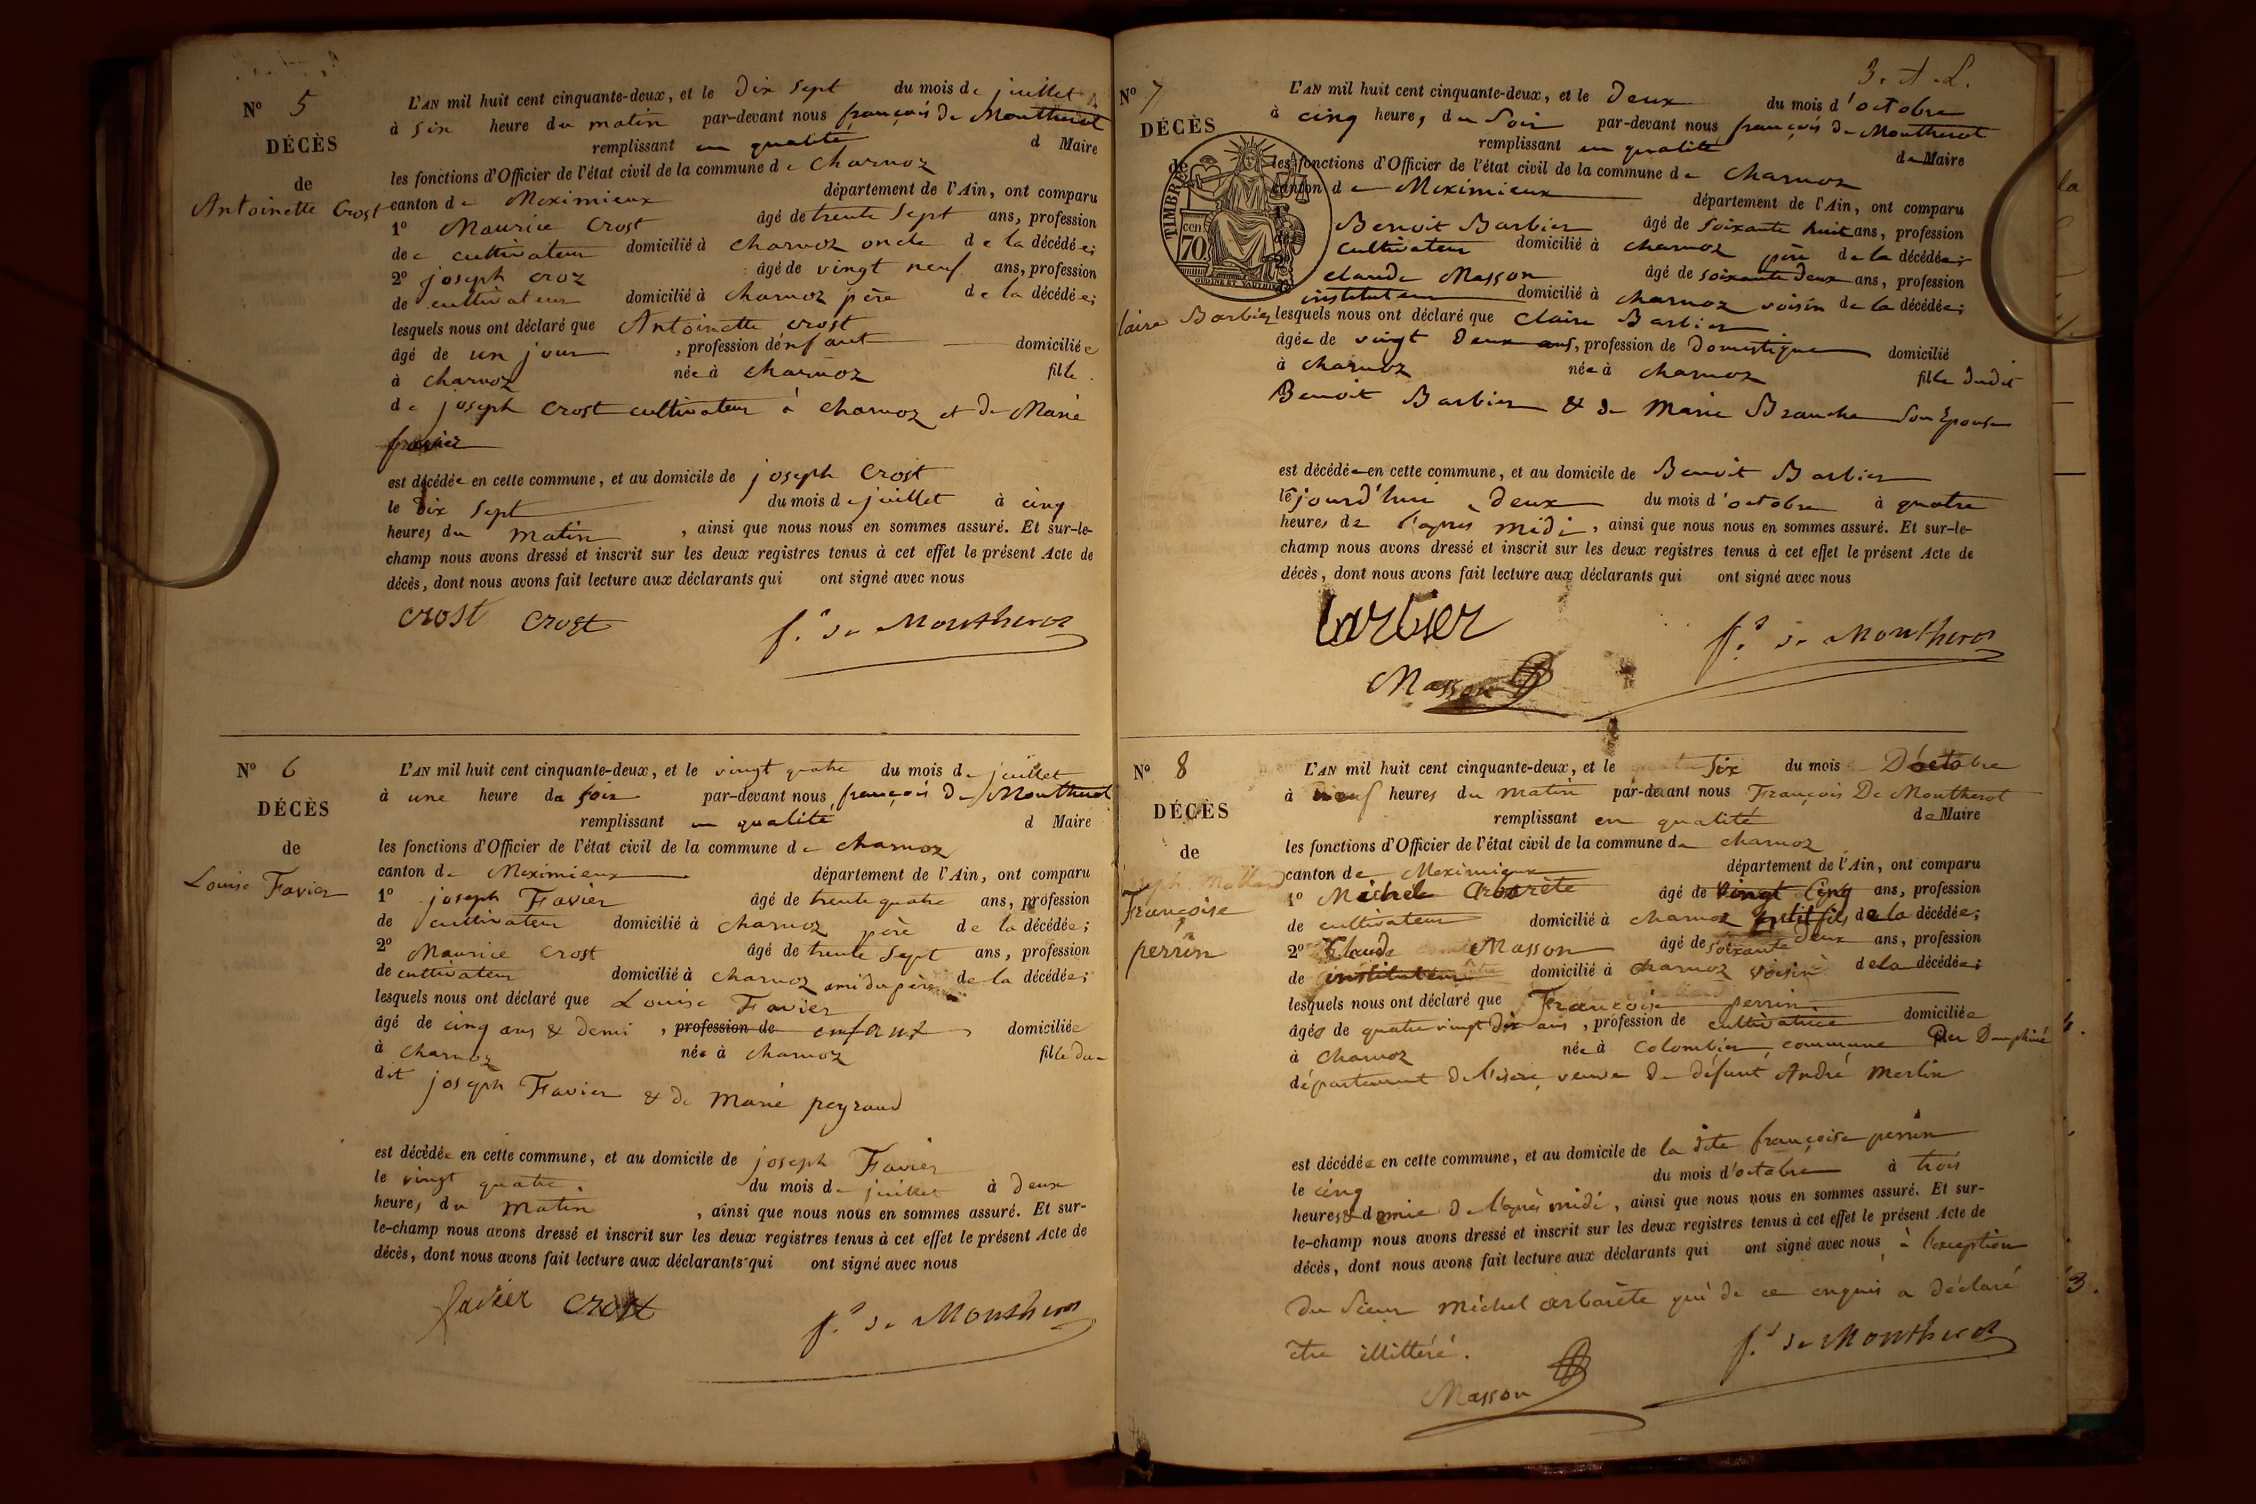 N° 5
DÉCÈS
de
Antoinette Crost
L'AN mil huit cent cinquante-deux, et le dix sept du mois de juillet
à six heure du matin par-devant nous françois de Montherot
remplissant en qualité d Maire
les fonctions d'Officier de l'état civil de la commune de charnoz
canton de Meximieux département de l'Ain, ont comparu
1° Maurice Crost âgé de trente sept ans, profession
de cultivateur domicilié à charnoz oncle de la décédée;
2° joseph croz âgé de vingt neuf ans, profession
de cultivateur domicilié à charnoz père de la décédée;
lesquels nous ont déclaré que Antoinette crost
âgé de un jour, profession d'enfant domiciliée
à charnoz née à charnoz fille
de joseph crost cultivateur à charnoz et de Marie
favier
est décédée en cette commune, et au domicile de joseph crost
le dix sept du mois de juillet à cinq
heures du matin, ainsi que nous nous en sommes assuré. Et sur-le-
champ nous avons dressé et inscrit sur les deux registres tenus à cet effet le présent Acte de
décès, dont nous avons fait lecture aux déclarants qui ont signé avec nous
crost crost f.s de Montherot
N° 6
DÉCÈS
de
Louise Favier
L'AN mil huit cent cinquante-deux, et le vingt quatre du mois de juillet
à une heure du soir par-devant nous françois de Montherot
remplissant en qualité d Maire
les fonctions d'Officier de l'état civil de la commune de charnoz
canton de Meximieux département de l'Ain, ont comparu
1° joseph Favier âgé de trente quatre ans, profession
de cultivateur domicilié à charnoz père de la décédée;
2° Maurice crost âgé de trente sept ans, profession
de cultivateur domicilié à charnoz ami du père de la décédée;
lesquels nous ont déclaré que Louise Favier
âgé de cinq ans & demi, profession de enfant, domiciliée
à charnoz née à charnoz fille du
dit joseph Favier & de Marie peyraud
est décédée en cette commune, et au domicile de joseph Favier
le vingt quatre du mois de juillet à deux
heures du matin, ainsi que nous nous en sommes assuré. Et sur-
le-champ nous avons dressé et inscrit sur les deux registres tenus à cet effet le présent Acte de
décès, dont nous avons fait lecture aux déclarants qui ont signé avec nous
favier crost f.s de Montherot
3. A. L.
N° 7
DÉCÈS
de
TIMBRE
CEN 70
OUDINÉ ET
laire Barbier
L'AN mil huit cent cinquante-deux, et le deux du mois d'octobre
à cinq heures du soir par-devant nous françois de Montherot
remplissant en qualité de Maire
les fonctions d'Officier de l'état civil de la commune de charnoz
canton de Meximieux département de l'Ain, ont comparu
Benoit Barbier âgé de soixante huit ans, profession
cultivateur domicilié à charnoz père de la décédée;
claude Masson âgé de soixante deux ans, profession
instituteur domicilié à charnoz voisin de la décédée;
lesquels nous ont déclaré que claire Barbier
âgée de vingt deux ans, profession de domestique domicilié
à charnoz née à charnoz fille dudit
Benoit Barbier & de Marie Branche son Epouse
est décédée en cette commune, et au domicile de Benoit Barbier
le jourd'hui deux du mois d'octobre à quatre
heures de l'après midi, ainsi que nous nous en sommes assuré. Et sur-le-
champ nous avons dressé et inscrit sur les deux registres tenus à cet effet le présent Acte de
décès, dont nous avons fait lecture aux déclarants qui ont signé avec nous
barbier f.s de Montherot
Masson
N° 8
DÉCÈS
de
Françoise
perrin
L'AN mil huit cent cinquante-deux, et le six du mois D'octobre
à neuf heures du matin par-devant nous François De Montherot
remplissant en qualité de Maire
les fonctions d'Officier de l'état civil de la commune de charnoz
canton de Meximieux département de l'Ain, ont comparu
1° Michel Arbarète âgé de vingt cinq ans, profession
de cultivateur domicilié à charnoz petit fils de la décédée;
2° Claude Masson âgé de soixante deux ans, profession
de instituteur domicilié à charnoz voisin de la décédée;
lesquels nous ont déclaré que Françoise perrin
âgée de quatre vingt dix ans, profession de cultivatrice domiciliée
à charnoz née à colombier, commune Du Dauphiné
département de l'isère, veuve de défunt André Merlin
est décédée en cette commune, et au domicile de la dite françoise perrin
le cinq du mois d'octobre à trois
heures & demie de l'après midi, ainsi que nous nous en sommes assuré. Et sur-
le-champ nous avons dressé et inscrit sur les deux registres tenus à cet effet le présent Acte de
décès, dont nous avons fait lecture aux déclarants qui ont signé avec nous, à l'exception
du sieur Michel arbarète qui de ce enquis a déclaré
être illittéré.
f.s de Montherot
Masson